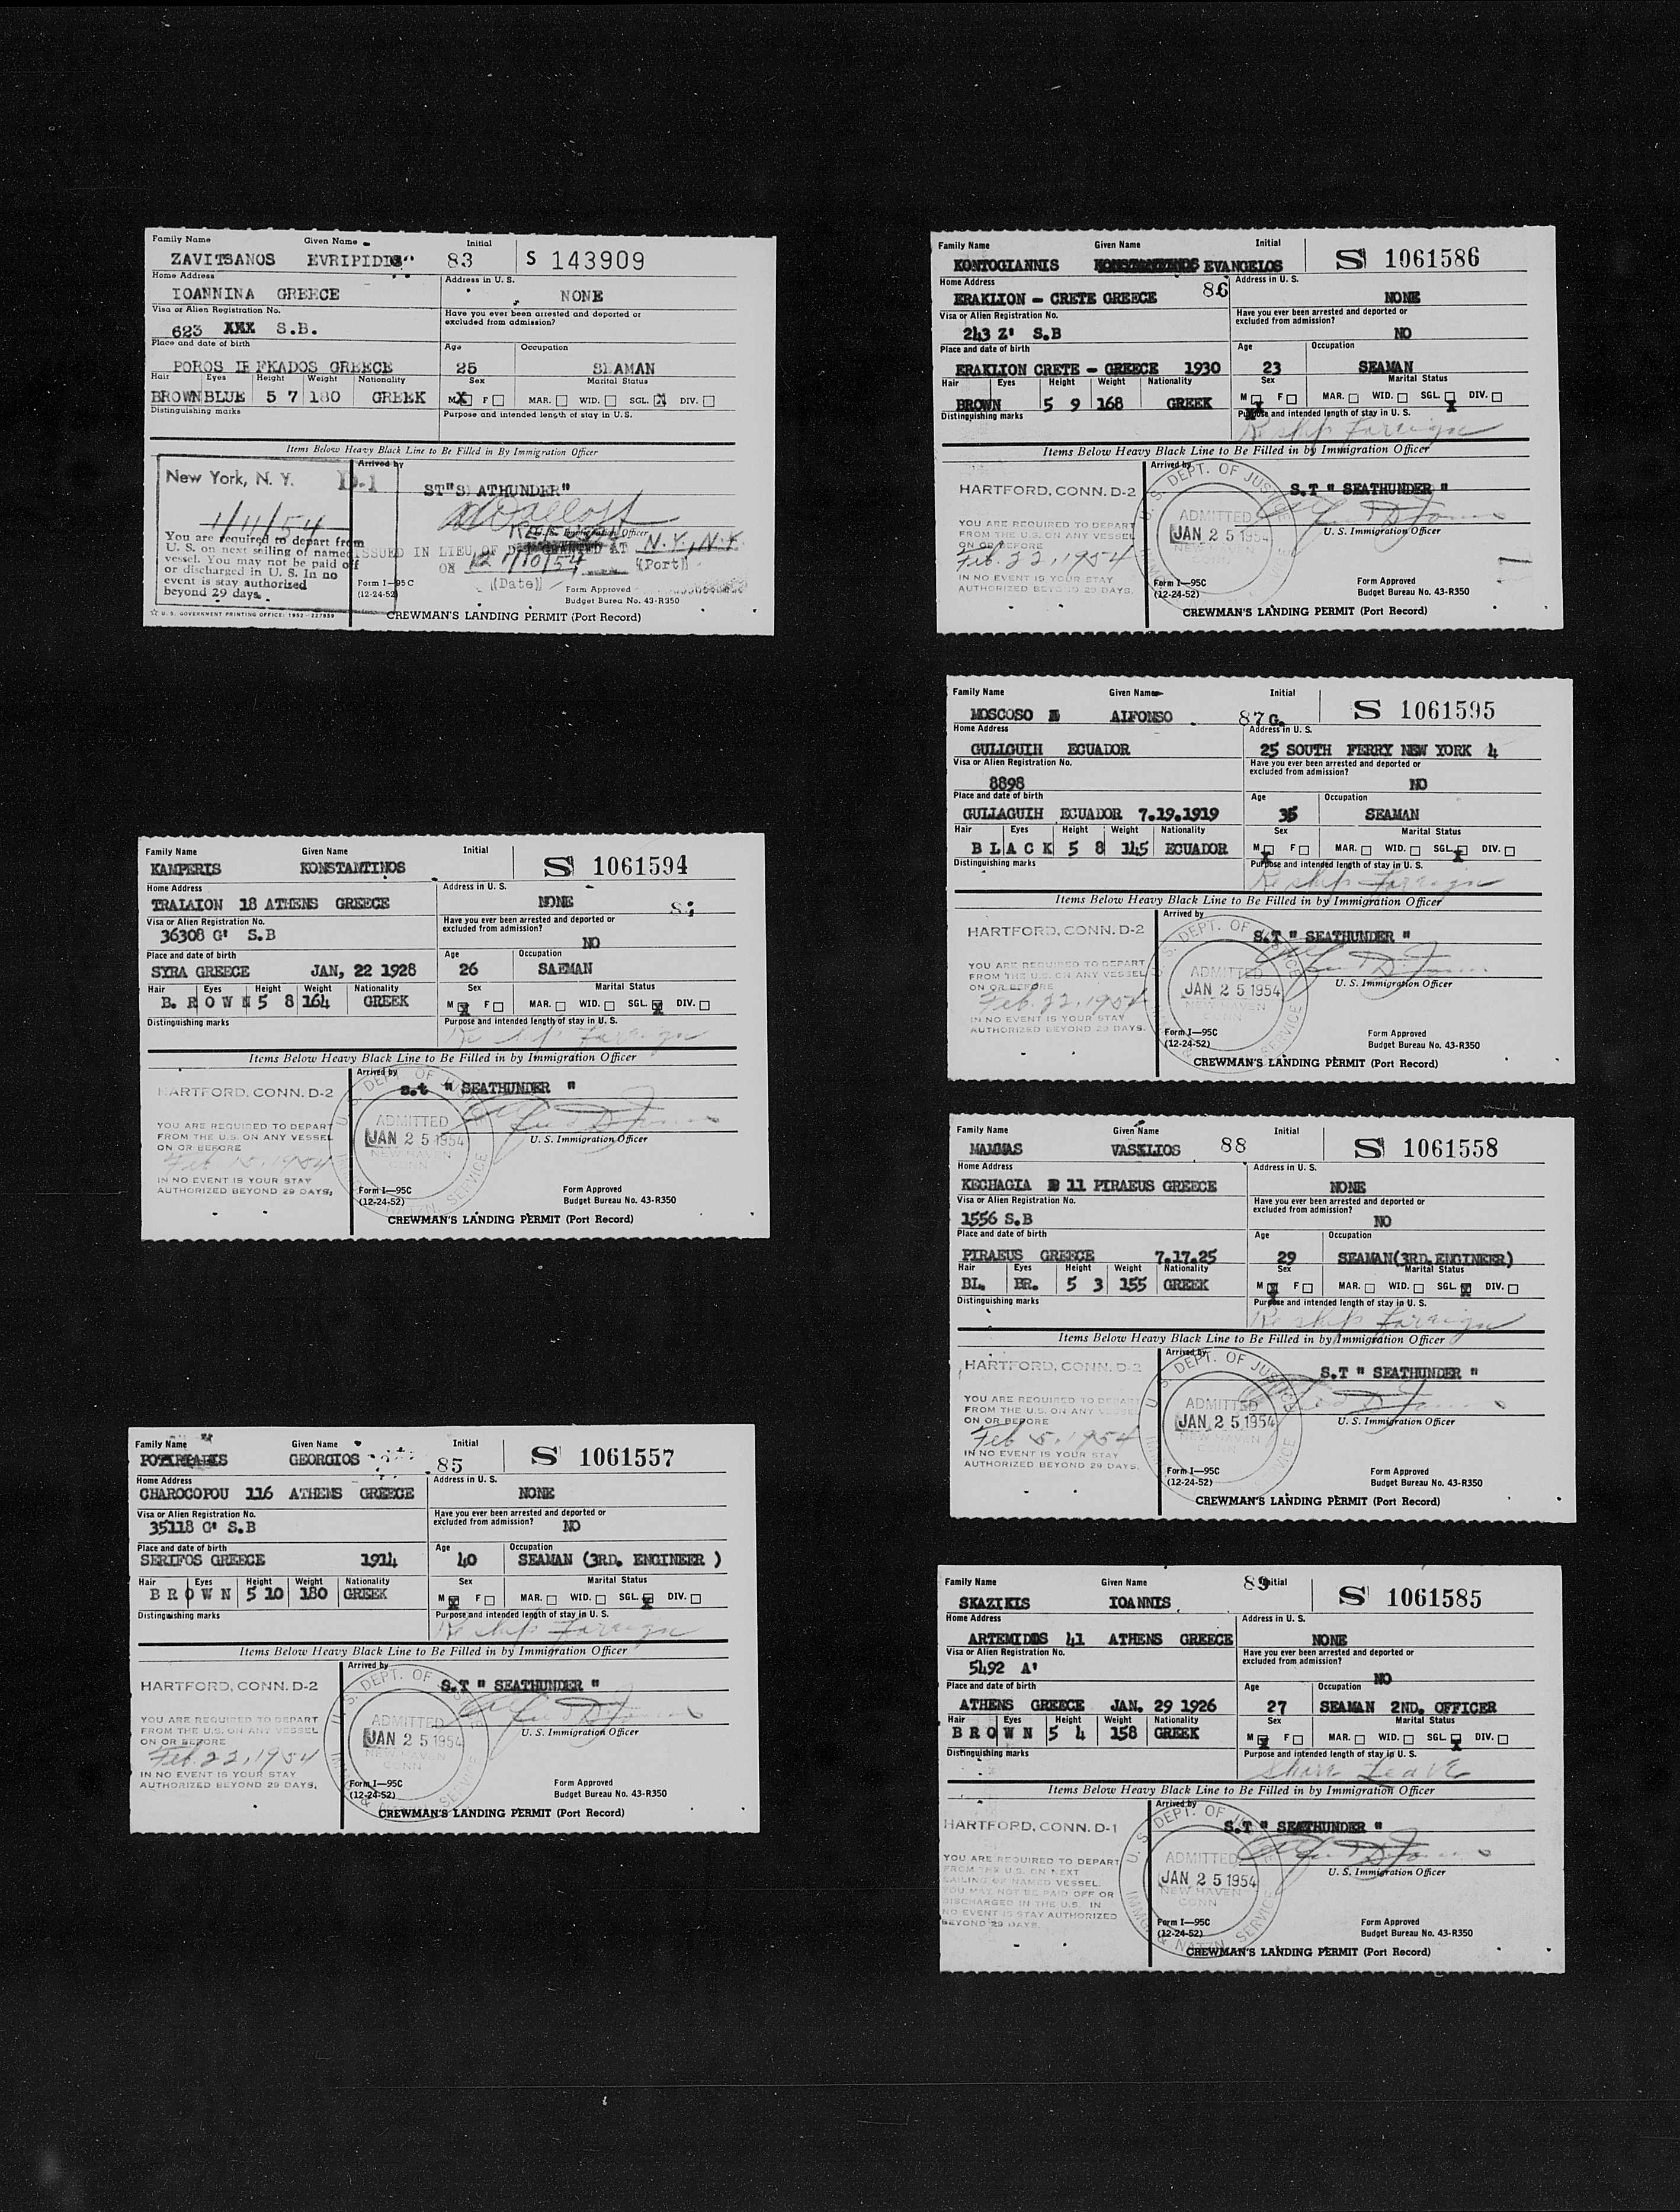 Family Name Given Name Initial
ZAVITSANOS EVRIPIDIS 83 S 143909
Home Address Address in U. S.
IOANNINA GREECE NONE
Visa or Alien Registration No. Have you ever been arrested and deported or
excluded from admission?
623 XXX S.B.
Place and date of birth Age Occupation
POROS GREECE 25 SEAMAN
Hair Eyes Height Weight Nationality Sex Marital Status
BROWN BLUE 5 7 180 GREEK M X F MAR. WID. SGL. X DIV.
Distinguishing marks Purpose and intended length of stay in U.S.
Items Below Heavy Black Line to Be Filled in By Immigration Officer
New York, N. Y. D-1 Arrived by
ST"S ATHUNDER"
1/11/54
U. S. Immigration Officer
You are required to depart from
U. S. on next sailing of named
vessel. You may not be paid off
or discharged in U. S. In no
event is stay authorized
beyond 29 days.
ISSUED IN LIEU OF GRANTED AT N.Y., N.Y.
ON 12/10/54 (Date) (Port)
Form I—95C
(12-24-52)
Form Approved
Budget Bureau No. 43-R350
☆ U. S. GOVERNMENT PRINTING OFFICE: 1952
CREWMAN'S LANDING PERMIT (Port Record)
Family Name Given Name Initial
KAMPERIS KONSTANTINOS S 1061594
Home Address Address in U. S.
TRALAION 18 ATHENS GREECE NONE
Visa or Alien Registration No. Have you ever been arrested and deported or
excluded from admission?
36308 G' S.B NO
Place and date of birth Age Occupation
SYRA GREECE JAN, 22 1928 26 SAEMAN
Hair Eyes Height Weight Nationality Sex Marital Status
B. R O W N 5 8 164 GREEK M X F MAR. WID. SGL. X DIV.
Distinguishing marks Purpose and intended length of stay in U. S.
Re ship Foreign
Items Below Heavy Black Line to Be Filled in by Immigration Officer
HARTFORD, CONN. D-2 Arrived by
S.t " SEATHUNDER "
U. S. DEPT. OF JUSTICE
ADMITTED
JAN 25 1954
NEW HAVEN
CONN
IMMG. & NATZN. SERVICE
U. S. Immigration Officer
YOU ARE REQUIRED TO DEPART
FROM THE U.S. ON ANY VESSEL
ON OR BEFORE
Feb 15, 1954
IN NO EVENT IS YOUR STAY
AUTHORIZED BEYOND 29 DAYS.
Form I—95C
(12-24-52)
Form Approved
Budget Bureau No. 43-R350
CREWMAN'S LANDING PERMIT (Port Record)
Family Name Given Name Initial
GEORGIOS 85 S 1061557
Home Address Address in U. S.
CHAROCOPOU 116 ATHENS GREECE NONE
Visa or Alien Registration No. Have you ever been arrested and deported or
excluded from admission?
35118 G' S.B NO
Place and date of birth Age Occupation
SERIFOS GREECE 1914 40 SEAMAN (3RD. ENGINEER )
Hair Eyes Height Weight Nationality Sex Marital Status
B R O W N 5 10 180 GREEK M X F MAR. WID. SGL. X DIV.
Distinguishing marks Purpose and intended length of stay in U. S.
Re ship Foreign
Items Below Heavy Black Line to Be Filled in by Immigration Officer
HARTFORD, CONN. D-2 Arrived by
S.T " SEATHUNDER "
U. S. DEPT. OF JUSTICE
ADMITTED
JAN 25 1954
NEW HAVEN
CONN
IMMG. & NATZN. SERVICE
U. S. Immigration Officer
YOU ARE REQUIRED TO DEPART
FROM THE U.S. ON ANY VESSEL
ON OR BEFORE
Feb. 22, 1954
IN NO EVENT IS YOUR STAY
AUTHORIZED BEYOND 29 DAYS.
Form I—95C
(12-24-52)
Form Approved
Budget Bureau No. 43-R350
CREWMAN'S LANDING PERMIT (Port Record)
Family Name Given Name Initial
KONTOGIANNIS EVANGELOS S 1061586
Home Address 86 Address in U. S.
ERAKLION - CRETE GREECE NONE
Visa or Alien Registration No. Have you ever been arrested and deported or
excluded from admission?
243 Z' S.B NO
Place and date of birth Age Occupation
ERAKLION CRETE - GREECE 1930 23 SEAMAN
Hair Eyes Height Weight Nationality Sex Marital Status
BROWN 5 9 168 GREEK M X F MAR. WID. SGL. X DIV.
Distinguishing marks Purpose and intended length of stay in U. S.
Re ship Foreign
Items Below Heavy Black Line to Be Filled in by Immigration Officer
HARTFORD, CONN. D-2 Arrived by
S.T " SEATHUNDER "
U. S. DEPT. OF JUSTICE
ADMITTED
JAN 25 1954
U. S. Immigration Officer
YOU ARE REQUIRED TO DEPART
FROM THE U.S. ON ANY VESSEL
ON OR BEFORE
Feb. 22, 1954
IN NO EVENT IS YOUR STAY
AUTHORIZED BEYOND 29 DAYS.
Form I—95C
(12-24-52)
Form Approved
Budget Bureau No. 43-R350
CREWMAN'S LANDING PERMIT (Port Record)
Family Name Given Name Initial
MOSCOSO ALFONSO 87 G. S 1061595
Home Address Address in U. S.
GULLGUIH ECUADOR 25 SOUTH FERRY NEW YORK 4
Visa or Alien Registration No. Have you ever been arrested and deported or
excluded from admission?
8898 NO
Place and date of birth Age Occupation
GULLAGUIH ECUADOR 7.19.1919 35 SEAMAN
Hair Eyes Height Weight Nationality Sex Marital Status
B L A C K 5 8 145 ECUADOR M X F MAR. WID. SGL. X DIV.
Distinguishing marks Purpose and intended length of stay in U. S.
Re ship Foreign
Items Below Heavy Black Line to Be Filled in by Immigration Officer
HARTFORD, CONN. D-2 Arrived by
S.T " SEATHUNDER "
U. S. DEPT. OF JUSTICE
ADMITTED
JAN 25 1954
NEW HAVEN
CONN
SERVICE
U. S. Immigration Officer
YOU ARE REQUIRED TO DEPART
FROM THE U.S. ON ANY VESSEL
ON OR BEFORE
Feb. 22, 1954
IN NO EVENT IS YOUR STAY
AUTHORIZED BEYOND 29 DAYS.
Form I—95C
(12-24-52)
Form Approved
Budget Bureau No. 43-R350
CREWMAN'S LANDING PERMIT (Port Record)
Family Name Given Name Initial
MAMMAS VASKLIOS 88 S 1061558
Home Address Address in U. S.
KECHAGIA 11 PIRAEUS GREECE NONE
Visa or Alien Registration No. Have you ever been arrested and deported or
excluded from admission?
1556 S.B NO
Place and date of birth Age Occupation
PIRAEUS GREECE 7.17.25 29 SEAMAN(3RD.ENGINEER)
Hair Eyes Height Weight Nationality Sex Marital Status
BL. BR. 5 3 155 GREEK M X F MAR. WID. SGL. X DIV.
Distinguishing marks Purpose and intended length of stay in U. S.
Re ship Foreign
Items Below Heavy Black Line to Be Filled in by Immigration Officer
HARTFORD, CONN. D-2 Arrived by
S.T " SEATHUNDER "
U. S. DEPT. OF JUSTICE
ADMITTED
JAN 25 1954
NEW HAVEN
CONN
U. S. Immigration Officer
YOU ARE REQUIRED TO DEPART
FROM THE U.S. ON ANY VESSEL
ON OR BEFORE
Feb 5, 1954
IN NO EVENT IS YOUR STAY
AUTHORIZED BEYOND 29 DAYS.
Form I—95C
(12-24-52)
Form Approved
Budget Bureau No. 43-R350
CREWMAN'S LANDING PERMIT (Port Record)
Family Name Given Name 89 Initial
SKAZIKIS IOANNIS S 1061585
Home Address Address in U. S.
ARTEMIDOS 41 ATHENS GREECE NONE
Visa or Alien Registration No. Have you ever been arrested and deported or
excluded from admission?
5492 A' NO
Place and date of birth Age Occupation
ATHENS GREECE JAN. 29 1926 27 SEAMAN 2ND. OFFICER
Hair Eyes Height Weight Nationality Sex Marital Status
B R O W N 5 4 158 GREEK M X F MAR. WID. SGL. X DIV.
Distinguishing marks Purpose and intended length of stay in U. S.
Shore Leave
Items Below Heavy Black Line to Be Filled in by Immigration Officer
HARTFORD, CONN. D-1 Arrived by
S.T " SEATHUNDER "
U. S. DEPT. OF JUSTICE
ADMITTED
JAN 25 1954
NEW HAVEN
CONN
IMMG. & NATZN. SERVICE
U. S. Immigration Officer
YOU ARE REQUIRED TO DEPART
FROM THE U.S. ON NEXT
SAILING OF NAMED VESSEL.
YOU MAY NOT BE PAID OFF OR
DISCHARGED IN THE U.S. IN
NO EVENT IS STAY AUTHORIZED
BEYOND 29 DAYS.
Form I—95C
(12-24-52)
Form Approved
Budget Bureau No. 43-R350
CREWMAN'S LANDING PERMIT (Port Record)